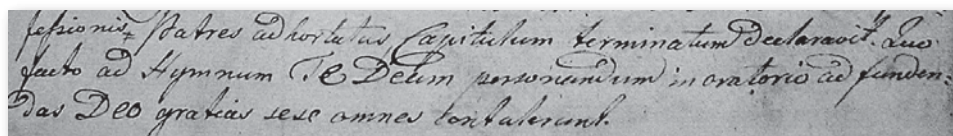 sessionis, Patres adhortatus Capitulum terminatum declaravit. Quo
facto ad Hymnum Te Deum personandum in oratorio ad funden-
das Deo gratias sese omnes contulerunt.